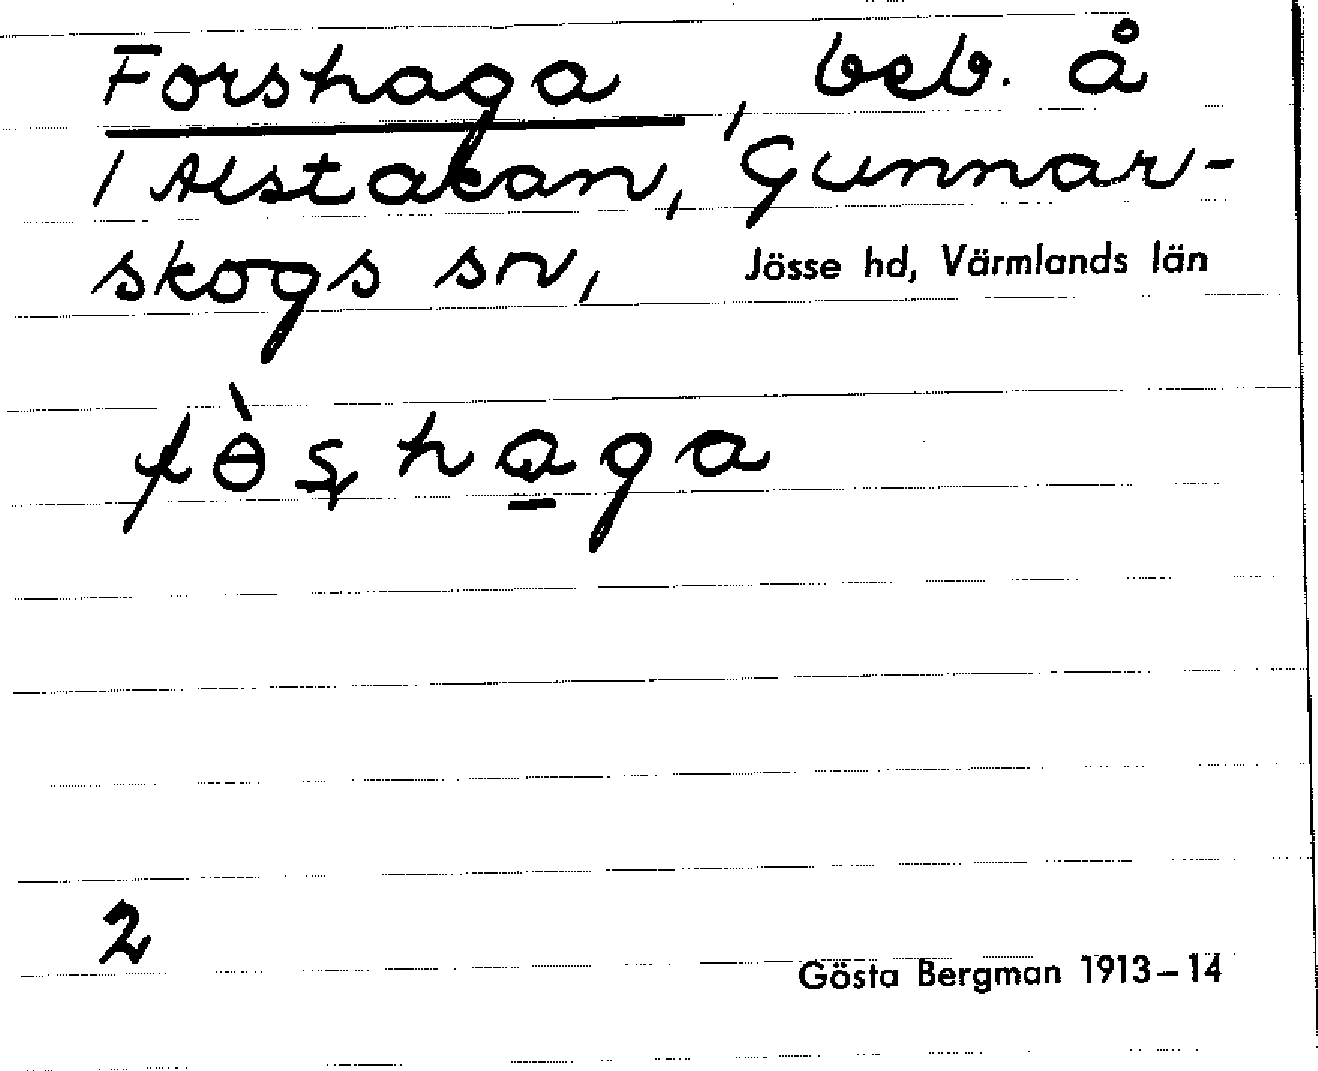 Forshaga, beb. å
1 Alstakan, Gunnar-
skogs sn, Jösse hd, Värmlands län
fɵ̀ʂha̠ga
2
Gösta Bergman 1913–14